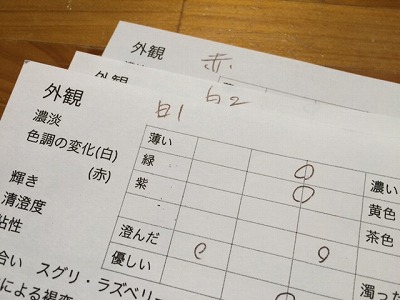 外観 赤
外観 白2
外観 白1
濃淡
色調の変化(白)
(赤)
輝き
清澄度
粘性
合い スグリ・ラズベリー
による視変
薄い 濃い
緑 黄色
紫 茶色
澄んだ 濁った
優しい